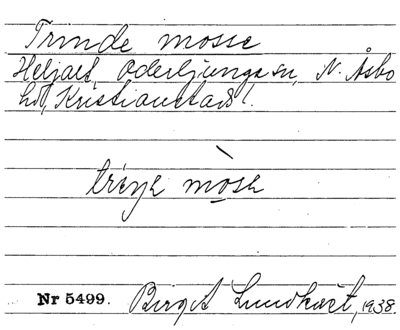 Trinde mosse
Heljalt, Oderljunga sn, N. Åsbo
hd, Kristianstads l.
Nr 5499. Birgit Lundkvist, 1938.